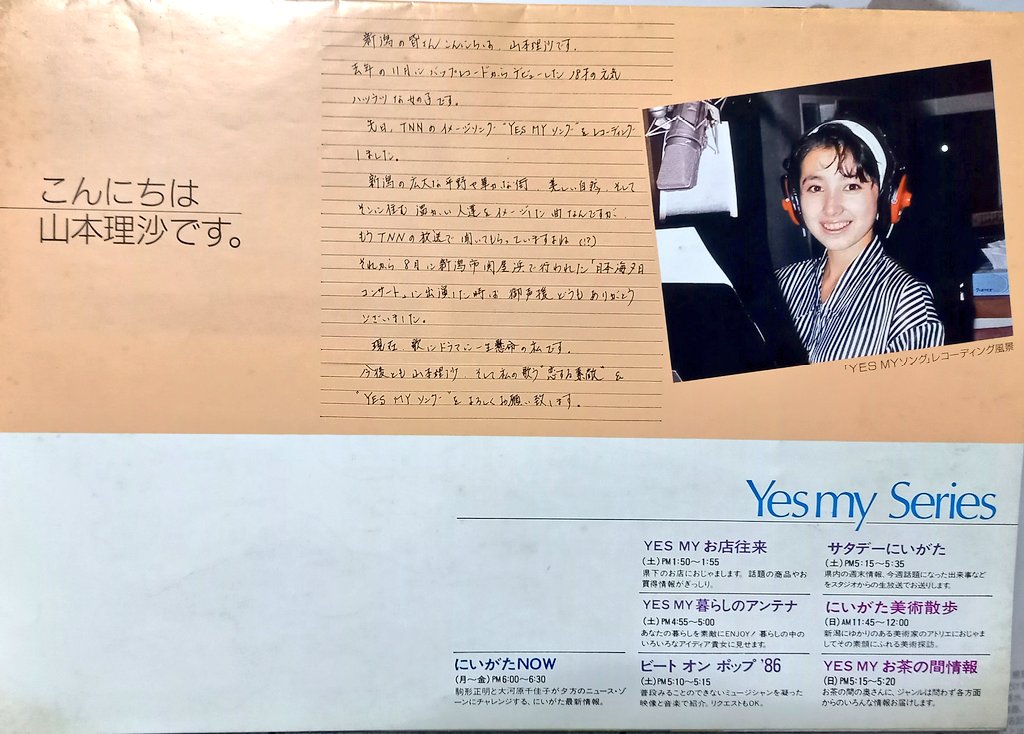 こんにちは
山本理沙です。
新潟の皆さんこんにちは、山本理沙です。
去年の11月にバップレコードからデビューした18才の元気
ハツラツな女の子です。
先日、TNNのイメージソング"YES MY ソング"をレコーディング
しました。
新潟の広大な平野や豊かな街、美しい自然、そして
そこに住む温かい人達をイメージした曲なんですが、
もうTNNの放送で聞いてもらっていますよね(!?)
それから8月に新潟市関屋浜で行われた「日本海夕日
コンサート」に出演した時は御声援どうもありがとう
ございました。
現在、歌にドラマに一生懸命の私です。
今後とも山本理沙、そして私の歌う"恋する素敵"を
"YES MY ソング"をよろしくお願い致します。
「YES MYソング」レコーディング風景
Yes my Series
YES MY お店往来
(土)PM1:50〜1:55
県下のお店におじゃまします。話題の商品やお
買得情報がぎっしり。
サタデーにいがた
(土)PM5:15〜5:35
県内の週末情報、今週話題になった出来事など
をスタジオからの生放送でお送りします。
YES MY 暮らしのアンテナ
(土)PM4:55〜5:00
あなたの暮らしを素敵にENJOY！暮らしの中の
いろいろなアイディア貴女に見せます。
にいがた美術散歩
(日)AM11:45〜12:00
新潟にゆかりのある美術家のアトリエにおじゃま
してその素顔にふれる美術探訪。
にいがたNOW
(月〜金)PM6:00〜6:30
駒形正明と大河原千佳子が夕方のニュース・ゾ
ーンにチャレンジする、にいがた最新情報。
ビート オン ポップ '86
(土)PM5:10〜5:15
普段みることのできないミュージシャンを凝った
映像と音楽で紹介。リクエストもOK。
YES MY お茶の間情報
(日)PM5:15〜5:20
お茶の間の奥さんに、ジャンルは問わず各方面
からのいろんな情報お届けします。